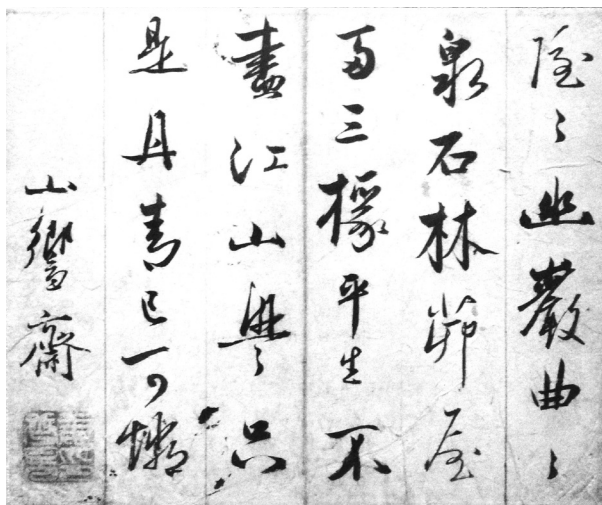 隱〻幽巖曲〻
泉石林茆屋
兩三椽平生不
盡江山興只
是丹青已可憐
山響齋